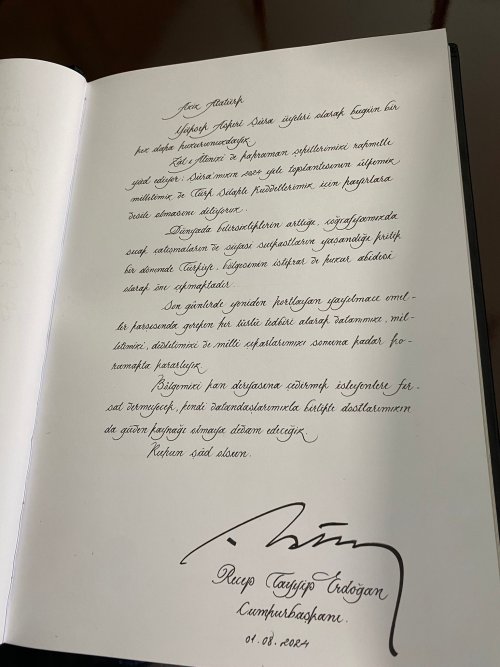 Aziz Atatürk
Yüksek Askerî Şûra üyeleri olarak bugün bir
kez daha huzurunuzdayız.
Zât-ı Âlinizi ve kahraman şehitlerimizi rahmetle
yâd ediyor; Şûra'mızın 2024 yılı toplantısının ülkemiz,
milletimiz ve Türk Silahlı Kuvvetlerimiz için hayırlara
vesile olmasını diliyorum.
Dünyada belirsizliklerin arttığı, coğrafyamızda
sıcak çatışmaların ve siyasi suikastların yaşandığı kritik
bir dönemde Türkiye, bölgesinin istikrar ve huzur abidesi
olarak öne çıkmaktadır.
Son günlerde yeniden hortlayan yayılmacı emel-
ler karşısında gereken her türlü tedbiri alarak vatanımızı, mil-
letimizi, devletimizi ve milli çıkarlarımızı sonuna kadar ko-
rumakta kararlıyız.
Bölgemizi kan deryasına çevirmek isteyenlere fır-
sat vermeyecek, kendi vatandaşlarımızla birlikte dostlarımızın
da güven kaynağı olmaya devam edeceğiz.
Ruhun şâd olsun.
Recep Tayyip Erdoğan
Cumhurbaşkanı
01.08.2024